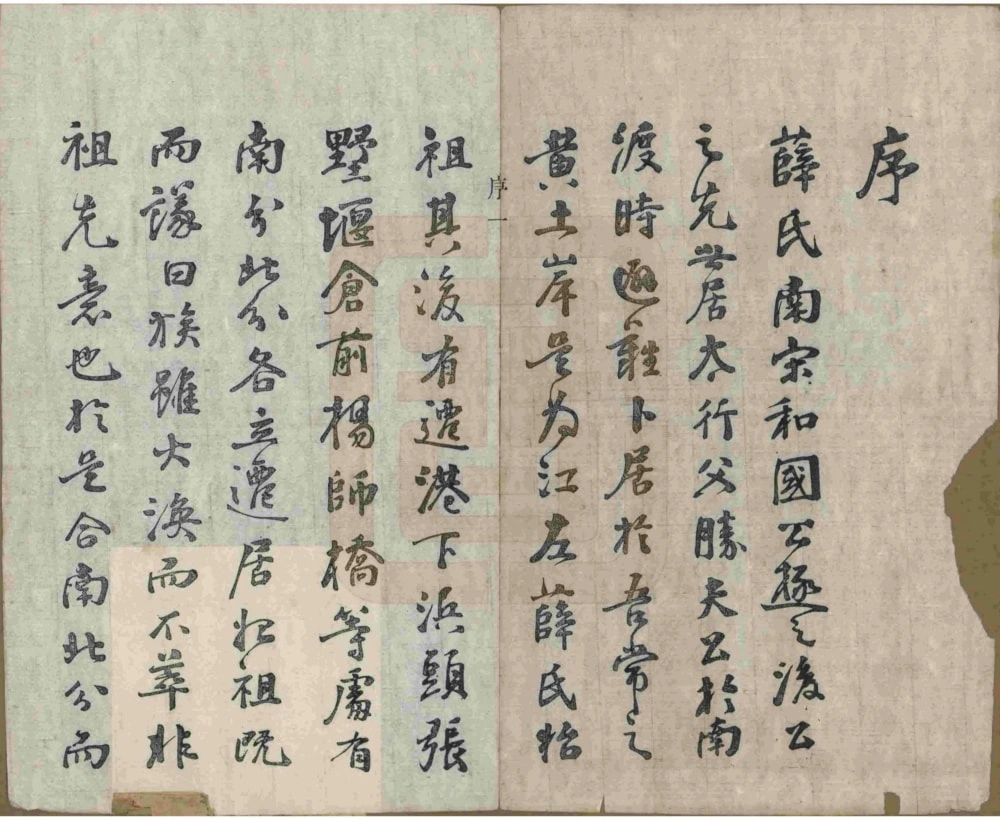 序
薛氏南宋和國公極之後公
之先世居太行父勝夫公於南
渡時避難卜居於吾常之
黄土岸是為江左薛氏始
序一
祖其後有遷港下浜頭張
墅堰倉前楊師橋等處有
南分北分各立遷居始祖既
而議曰族雖大渙而不萃非
祖先意也於是合南北分而